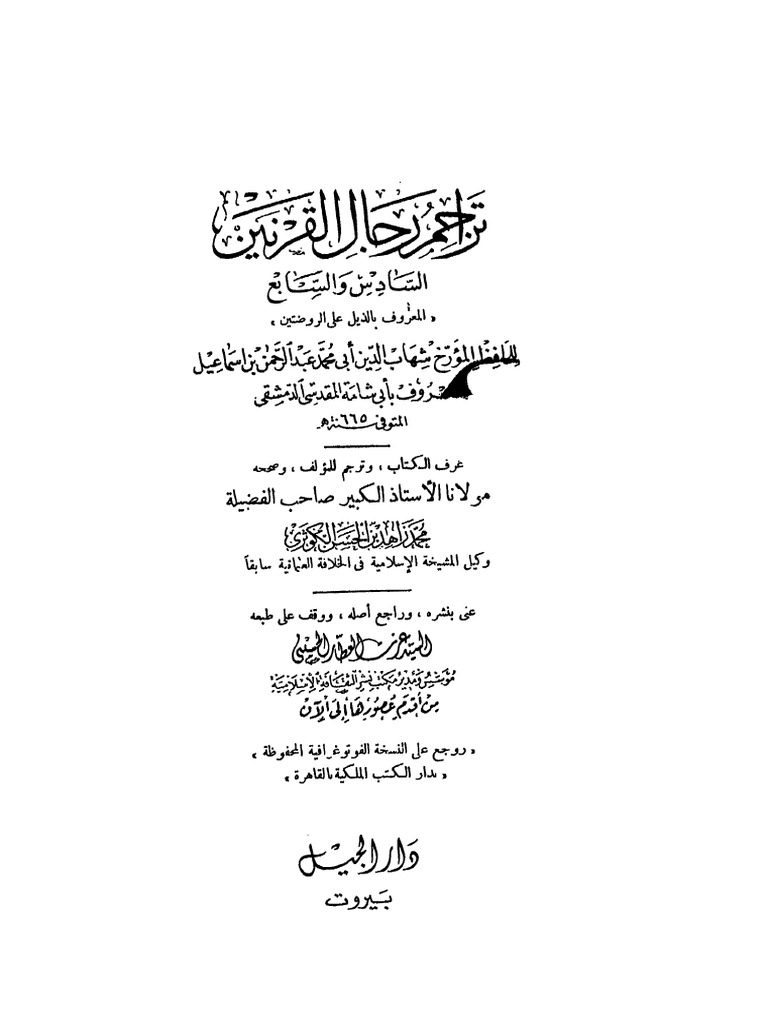 تراجم رجال القرنين
السادس والسابع
« المعروف بالذيل على الروضتين »
للحافظ المؤرخ شهاب الدين أبي محمد عبد الرحمن بن اسماعيل
المعروف بأبي شامة المقدسي الدمشقي
المتوفى سنة ٦٦٥ هـ
عرف الكتاب ، وترجم للمؤلف ، وصححه
مولانا الأستاذ الكبير صاحب الفضيلة
محمد زاهد بن الحسن الكوثري
وكيل المشيخة الإسلامية فى الخلافة العثمانية سابقاً
عنى بنشره ، وراجع أصله ، ووقف على طبعه
السيد عزت العطار الحسيني
مؤسس ومدير مكتب نشر الثقافة الإسلامية
من أقدم عصورها إلى الآن
« روجع على النسخة الفوتوغرافية المحفوظة »
« بدار الكتب الملكية بالقاهرة »
دار الجيل
بيروت